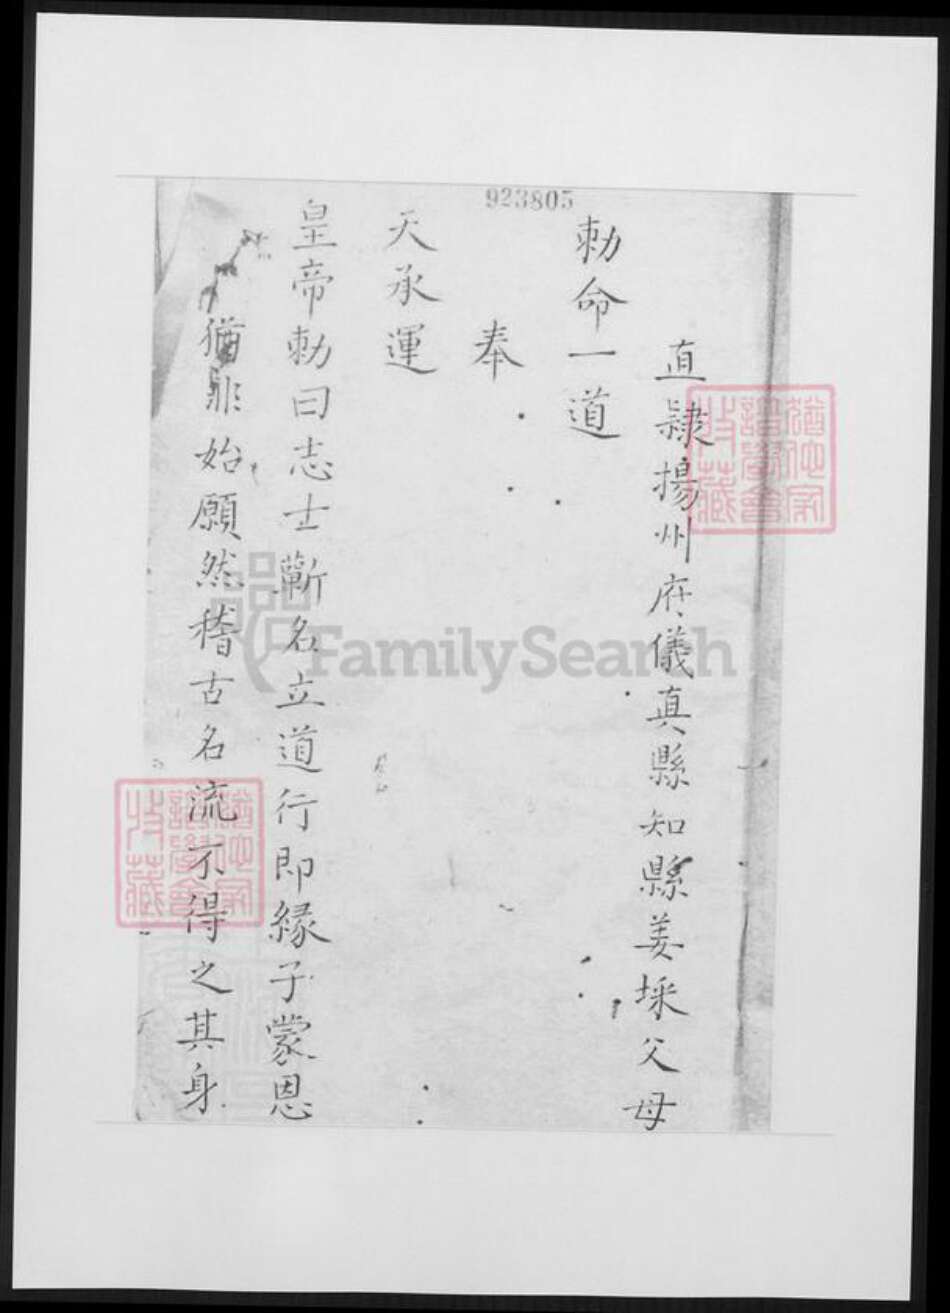 923805
直隸揚州府儀真縣知縣姜埰父母
勅命一道
奉
天承運
皇帝勅曰志士蘄名立道行即緣子蒙恩
猶非始願然稽古名流不得之其身
FamilySearch